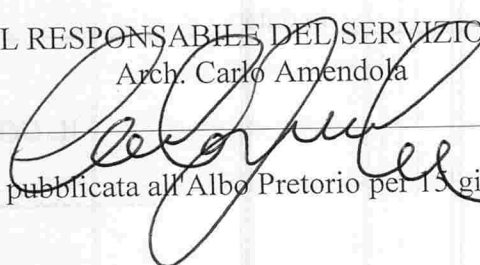 L RESPONSABILE DEL SERVIZIO
Arch. Carlo Amendola
pubblicata all'Albo Pretorio per 15 gi